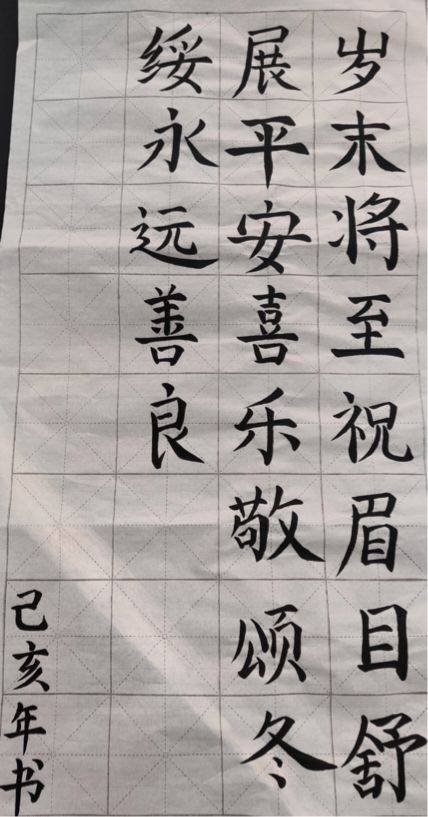 岁末将至祝眉目舒
展平安喜乐敬颂冬
绥永远善良
己亥年书